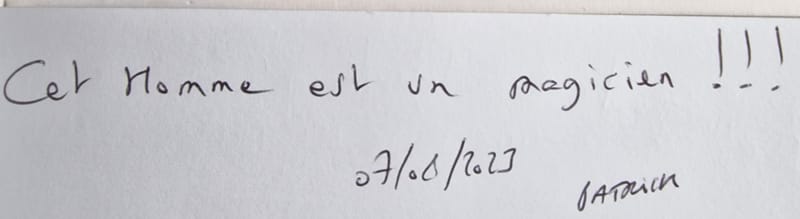 Cet Homme est un magicien !!!
07/08/2023
PATRICK